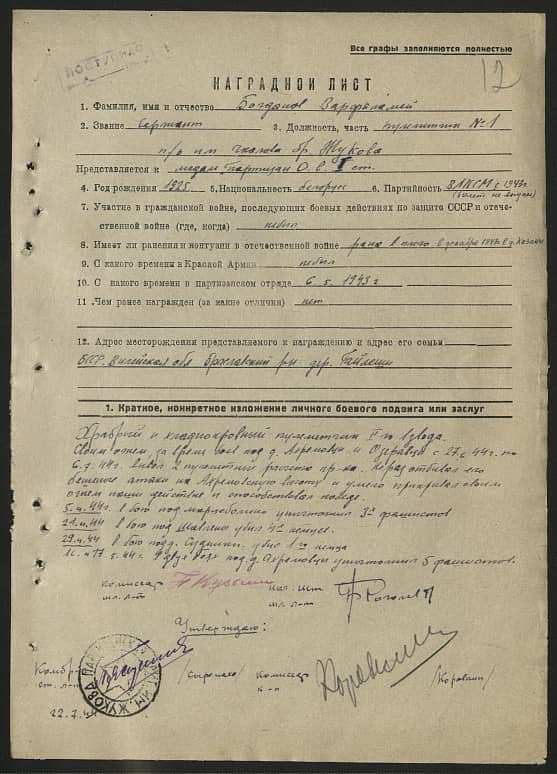 Все графы заполняются полностью
ПОСТУПИЛО
12
НАГРАДНОЙ ЛИСТ
1. Фамилия, имя и отчество Богданов Варфаламей
2. Звание Сержант 3. Должность, часть пулеметчик №1
п/о им Чкалова бр. Жукова
Представляется к медали Партизан О.в. ст.
4. Год рождения 1925 5. Национальность белорус 6. Партийность ВЛКСМ с 1943г
(билет не выдан)
7. Участие в гражданской войне, последующих боевых действиях по защите СССР и отече-
ственной войне (где, когда) небыл
8. Имеет ли ранения и контузии в отечественной войне ранен в плечо в декабре 1943 в д.
9. С какого времени в Красной Армии небыл
10. С какого времени в партизанском отряде 6. 5. 1943 г
11. Чем ранее награжден (за какие отличия) нет
12. Адрес месторождения представляемого к награждению и адрес его семьи
БССР. Вилейская обл Браславский р-н дер.
1. Краткое, конкретное изложение личного боевого подвига или заслуг
Храбрый и хладнокровный пулеметчик II го взвода.
Своим огнем за время боев под д. Ахремовцы и 44г. по
44г. вывел 2 пулеметных расчета пр-ка. отбивал его
бешеные атаки на Ахремовскую высоту и умело прикрывал своим
огнем наши действия и способствовал победе.
5.4.44 в бою под уничтожил 3х фашистов
21.4.44 в бою под Шавлено убил 4х немцев.
29.4.44 в бою под д. убил 1го немца
16 и 17 5.44 г в двух боях под д. Ахремовцы уничтожил 5 фашистов.
комиссар нач. шт.
мл. л-т мл. л-т
Утверждаю:
Комбр-г комиссар
ст. л-т к-н
ИМ. ЖУКОВА
22.7.44